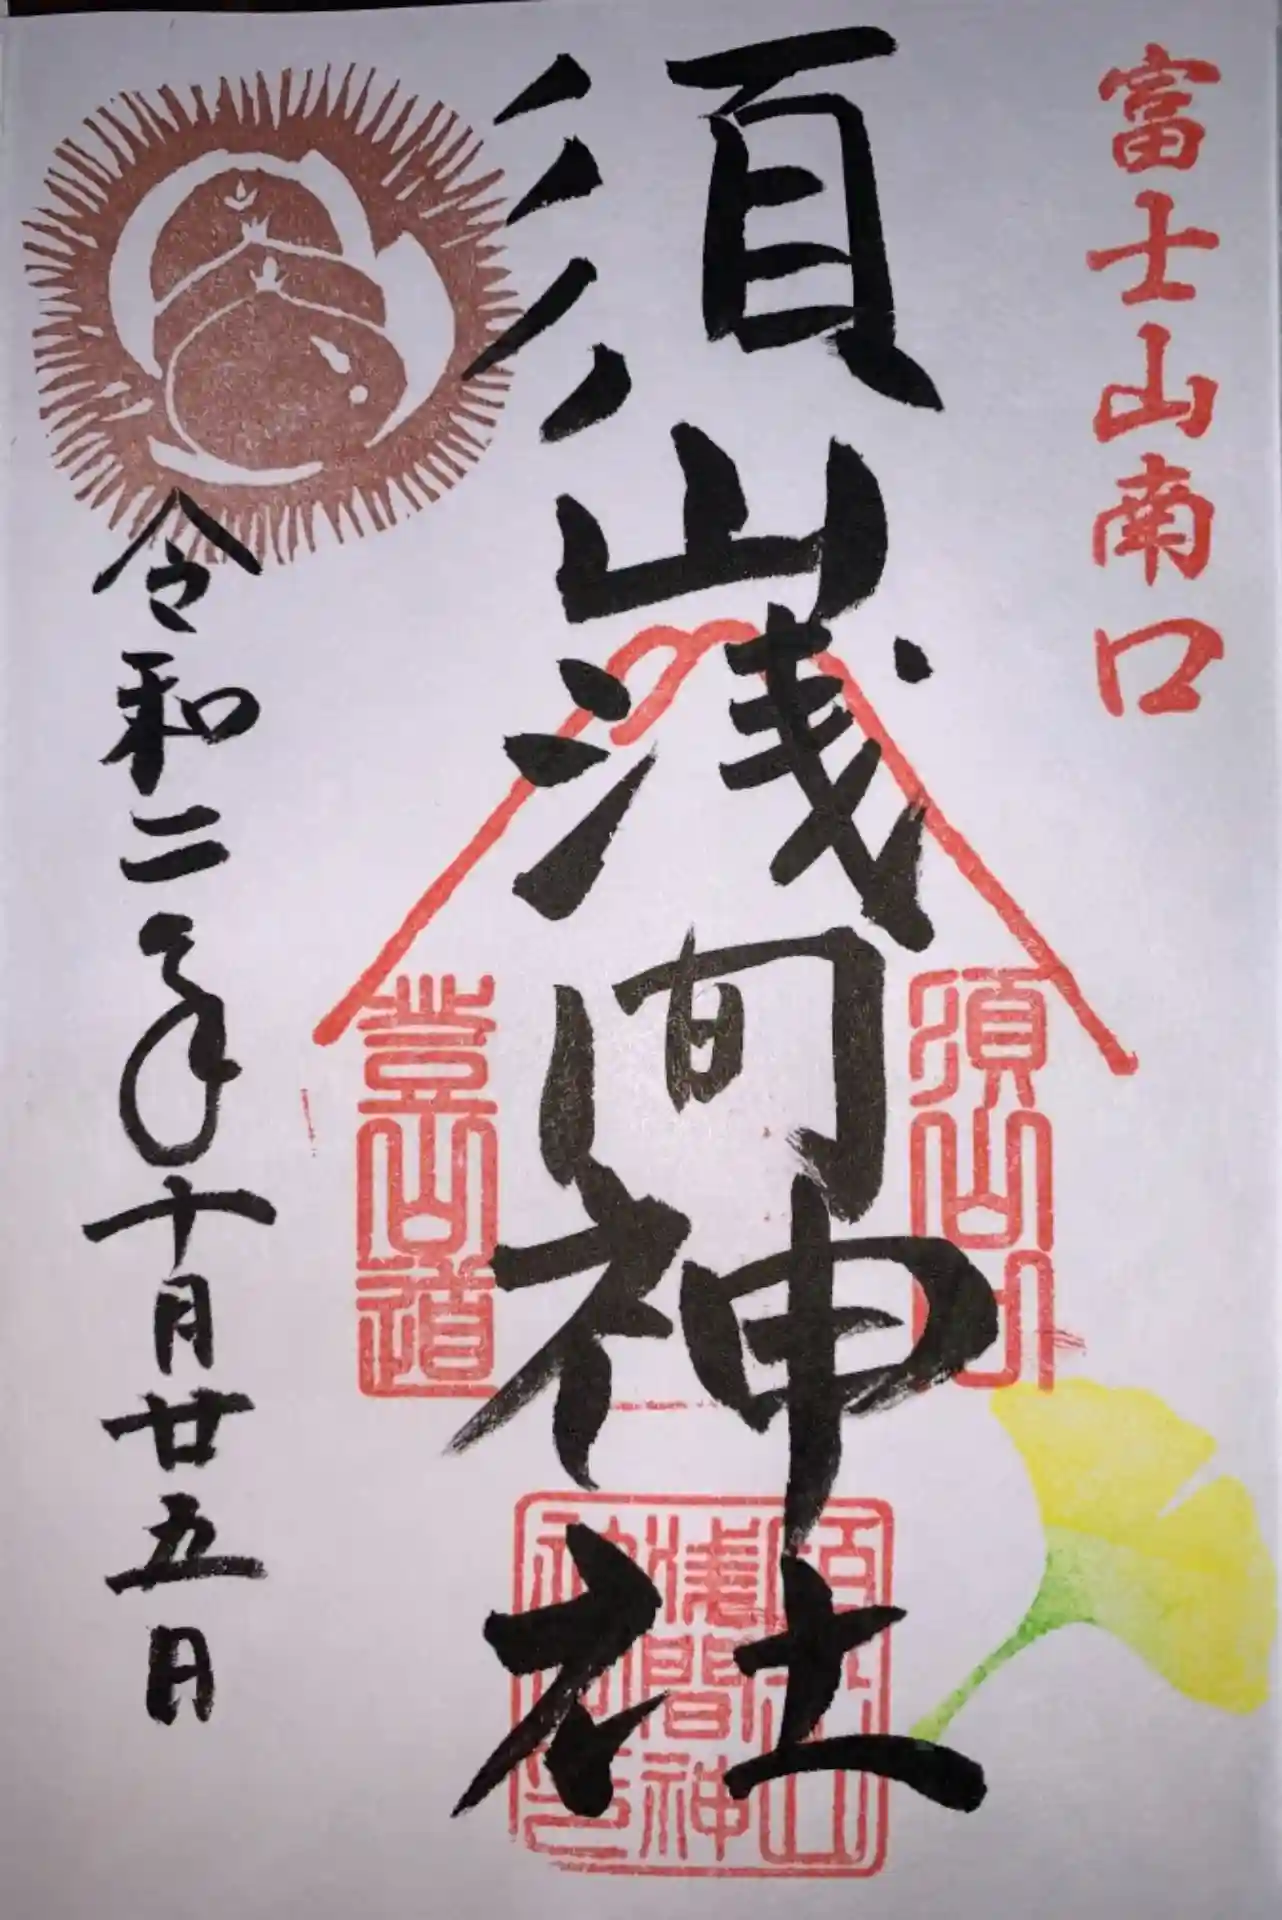 富士山南口
須山浅间神社
須山口
登山道
須山浅間神社
令和二年十月廿五日